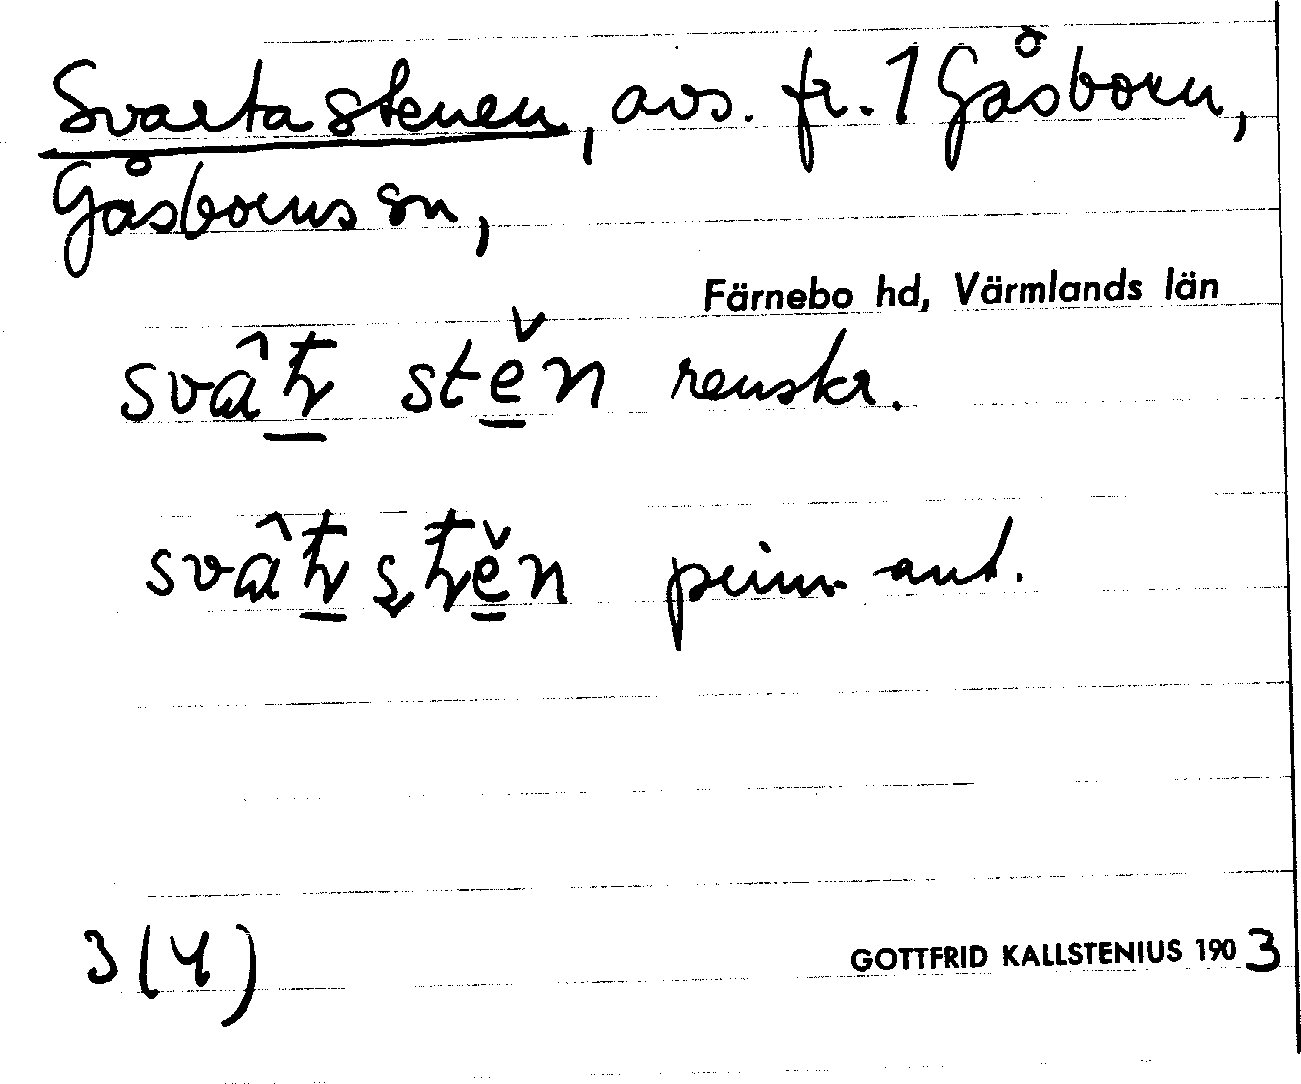 Svarta stenen, avs. fr. 1 Gåsborn,
Gåsborns sn,
Färnebo hd, Värmlands län
renskr.
prim. ant.
3 (4)
GOTTFRID KALLSTENIUS 1903